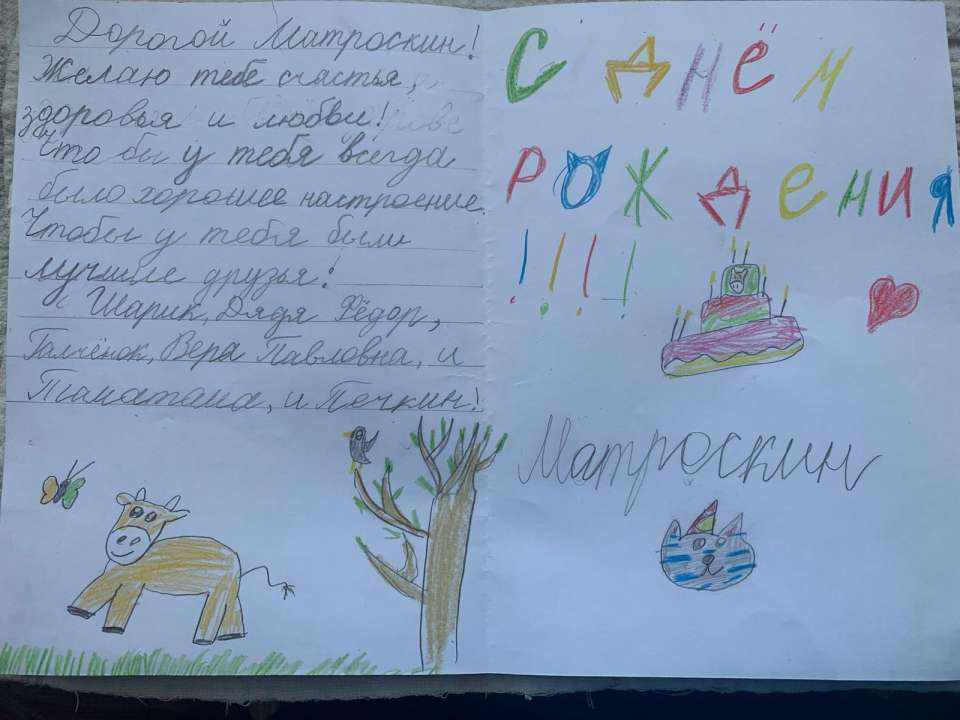 Дорогой Матроскин!
Желаю тебе счастья,
здоровья и любви!
Что бы у тебя всегда
было хорошее настроение.
Чтобы у тебя были
лучшие друзья!
Шарик, Дядя Фёдор,
Галчёнок, Вера Павловна, и
и Печкин!
С ДНЁМ
РОЖДЕНИЯ
!!!!
Матроскин